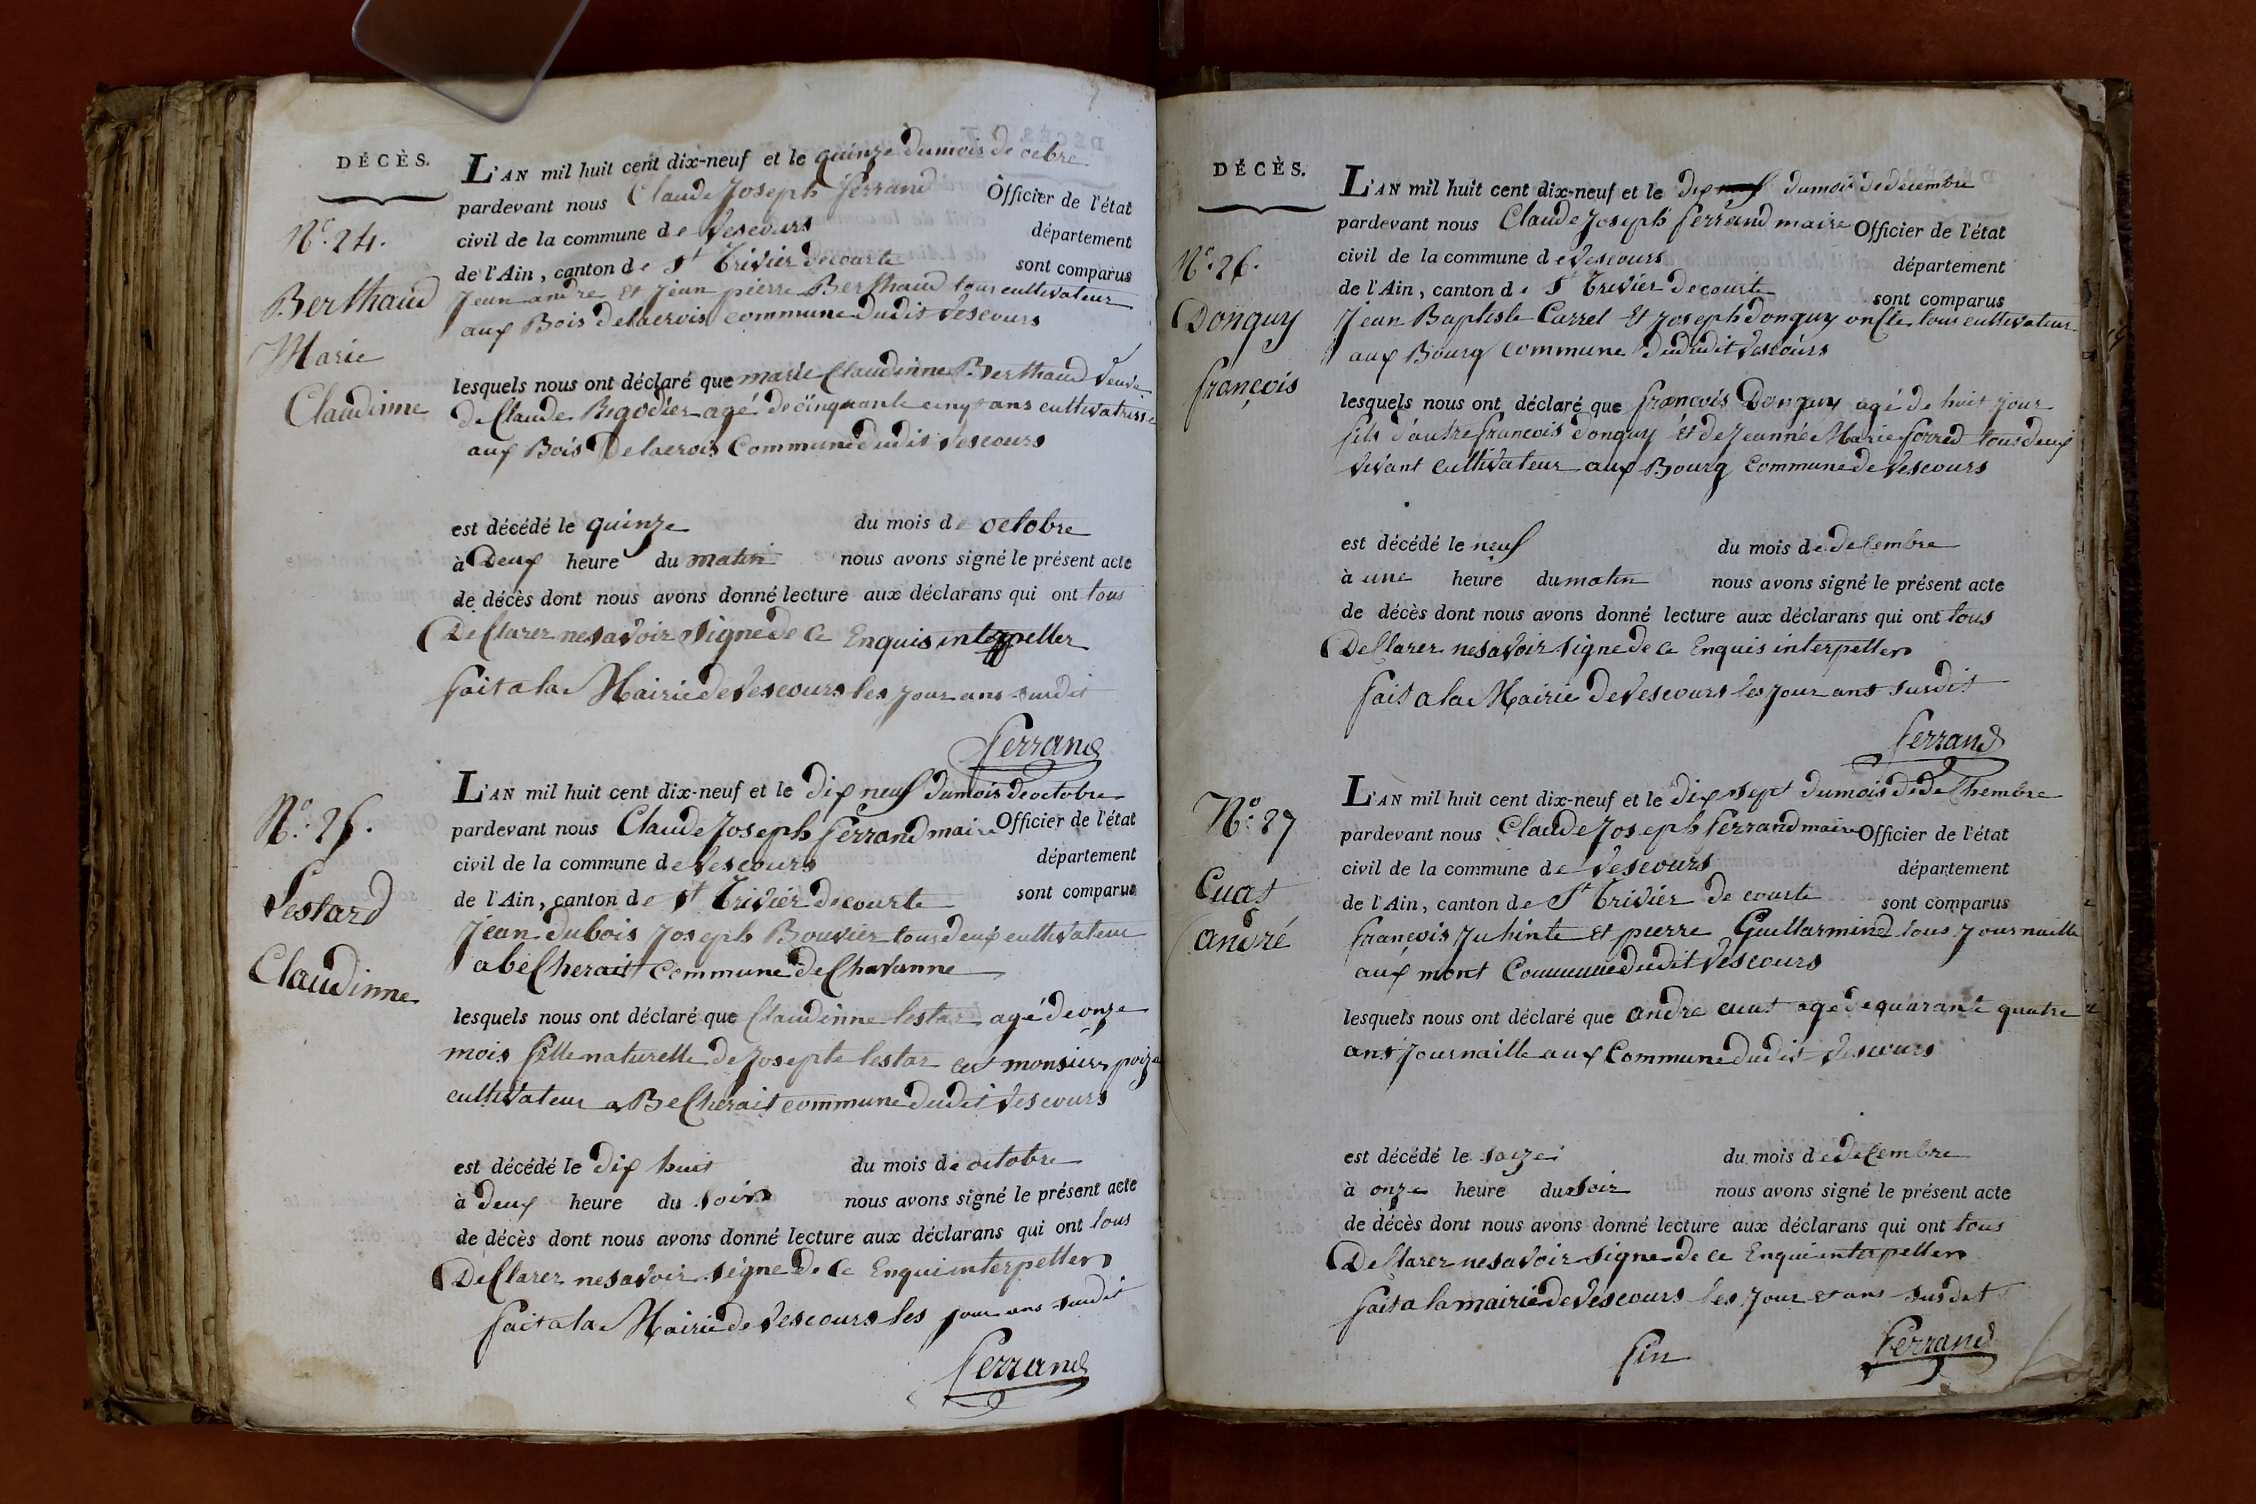 DÉCÈS.
N.º 24.
Berthaud
Marie
Claudinne
L'AN mil huit cent dix-neuf et le quinze du mois de octbre
pardevant nous Claude Joseph ferrand Officier de l'état
civil de la commune de Vescours département
de l'Ain, canton de St trivier decourte sont comparus
Jean andre Et Jean pierre Berthaud tous cultivateur
aux Bois delacrois commune dudit Vescours
lesquels nous ont déclaré que marie Claudinne Berthaud Veuve
de Claude Bigodier agé de cinquante cinq ans cultivatrisse
aux Bois Delacrois Commune dudit Vescours
est décédé le quinze du mois de octobre
à Deux heure du matin nous avons signé le présent acte
de décès dont nous avons donné lecture aux déclarans qui ont tous
Declarer ne savoir signe de ce Enquis interpeller
fait a la Mairie de Vescours les jour ans susdit
ferrand
N.º 25.
Lestard
Claudinne
L'AN mil huit cent dix-neuf et le dix neuf du mois de octobre
pardevant nous Claude Joseph ferrand maire Officier de l'état
civil de la commune de Vescours département
de l'Ain, canton de St trivier decourte sont comparus
Jean dubois Joseph Bouvier tous deux cultivateur
a becherait Commune de Chavanne
lesquels nous ont déclaré que Claudinne lestar agé de onze
mois fille naturelle de Josepte lestar monsieur
cultivateur a Becherait commune dudit Vescours
est décédé le dix huit du mois de octobre
à deux heure du soir nous avons signé le présent acte
de décès dont nous avons donné lecture aux déclarans qui ont tous
Declarer ne savoir signe de ce Enqui interpeller
fait a la Mairie de Vescours les jour ans susdit
ferrand
DÉCÈS.
N.º 26.
Donguy
françois
L'AN mil huit cent dix-neuf et le dix du mois de decembre
pardevant nous Claude Joseph ferrand maire Officier de l'état
civil de la commune de Vescours département
de l'Ain, canton de St trivier decourte sont comparus
Jean Baptiste Carrel Et Joseph Donguy oncle tous cultivateur
aux Bourg commune dudit Vescours
lesquels nous ont déclaré que françois Donguy agé de huit jour
fils d'autre françois donguy Et de Jeanne Marie forred tous deux
vivant cultivateur aux Bourg commune de Vescours
est décédé le neuf du mois de decembre
à une heure du matin nous avons signé le présent acte
de décès dont nous avons donné lecture aux déclarans qui ont tous
Declarer ne savoir signe de ce Enquis interpeller
fait a la Mairie de Vescours les jour ans susdit
ferrand
N.º 27
Cuat
andré
L'AN mil huit cent dix-neuf et le dix sept du mois de dethembre
pardevant nous Claude Joseph ferrand maire Officier de l'état
civil de la commune de Vescours département
de l'Ain, canton de St trivier de courte sont comparus
françois Juhinte Et pierre Guillarmind tous Journaille
aux mont Commune dudit Vescours
lesquels nous ont déclaré que andre cuat agé de quarante quatre
ans Journaille aux Commune dudit Vescours
est décédé le saize du mois de decembre
à onze heure du soir nous avons signé le présent acte
de décès dont nous avons donné lecture aux déclarans qui ont tous
Declarer ne savoir signe de ce Enqui interpeller
fait a la mairie de Vescours les jour et ans susdit
fin ferrand